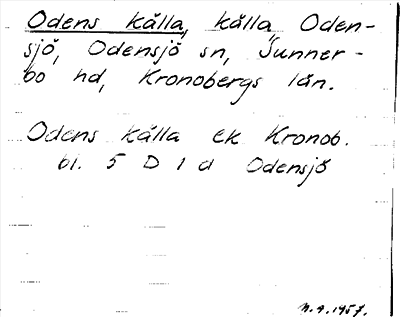 Odens källa, källa, Oden-
sjö, Odensjö sn, Sunner-
bo hd, Kronobergs län.
Odens källa ek Kronob.
bl. 5 D 1 d Odensjö
n.a. 1957.